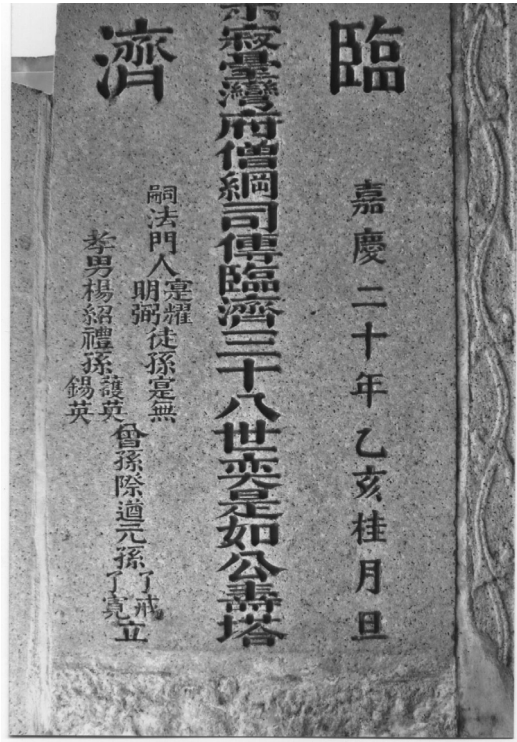 臨濟
嘉慶二十年乙亥桂月旦
示寂臺灣府僧綱司傳臨濟三十八世奕是如公壽塔
嗣法門人寔耀明弼徒孫寔無
孝男楊紹禮孫䕶英錫英
曾孫際遒元孫了戒了寬立